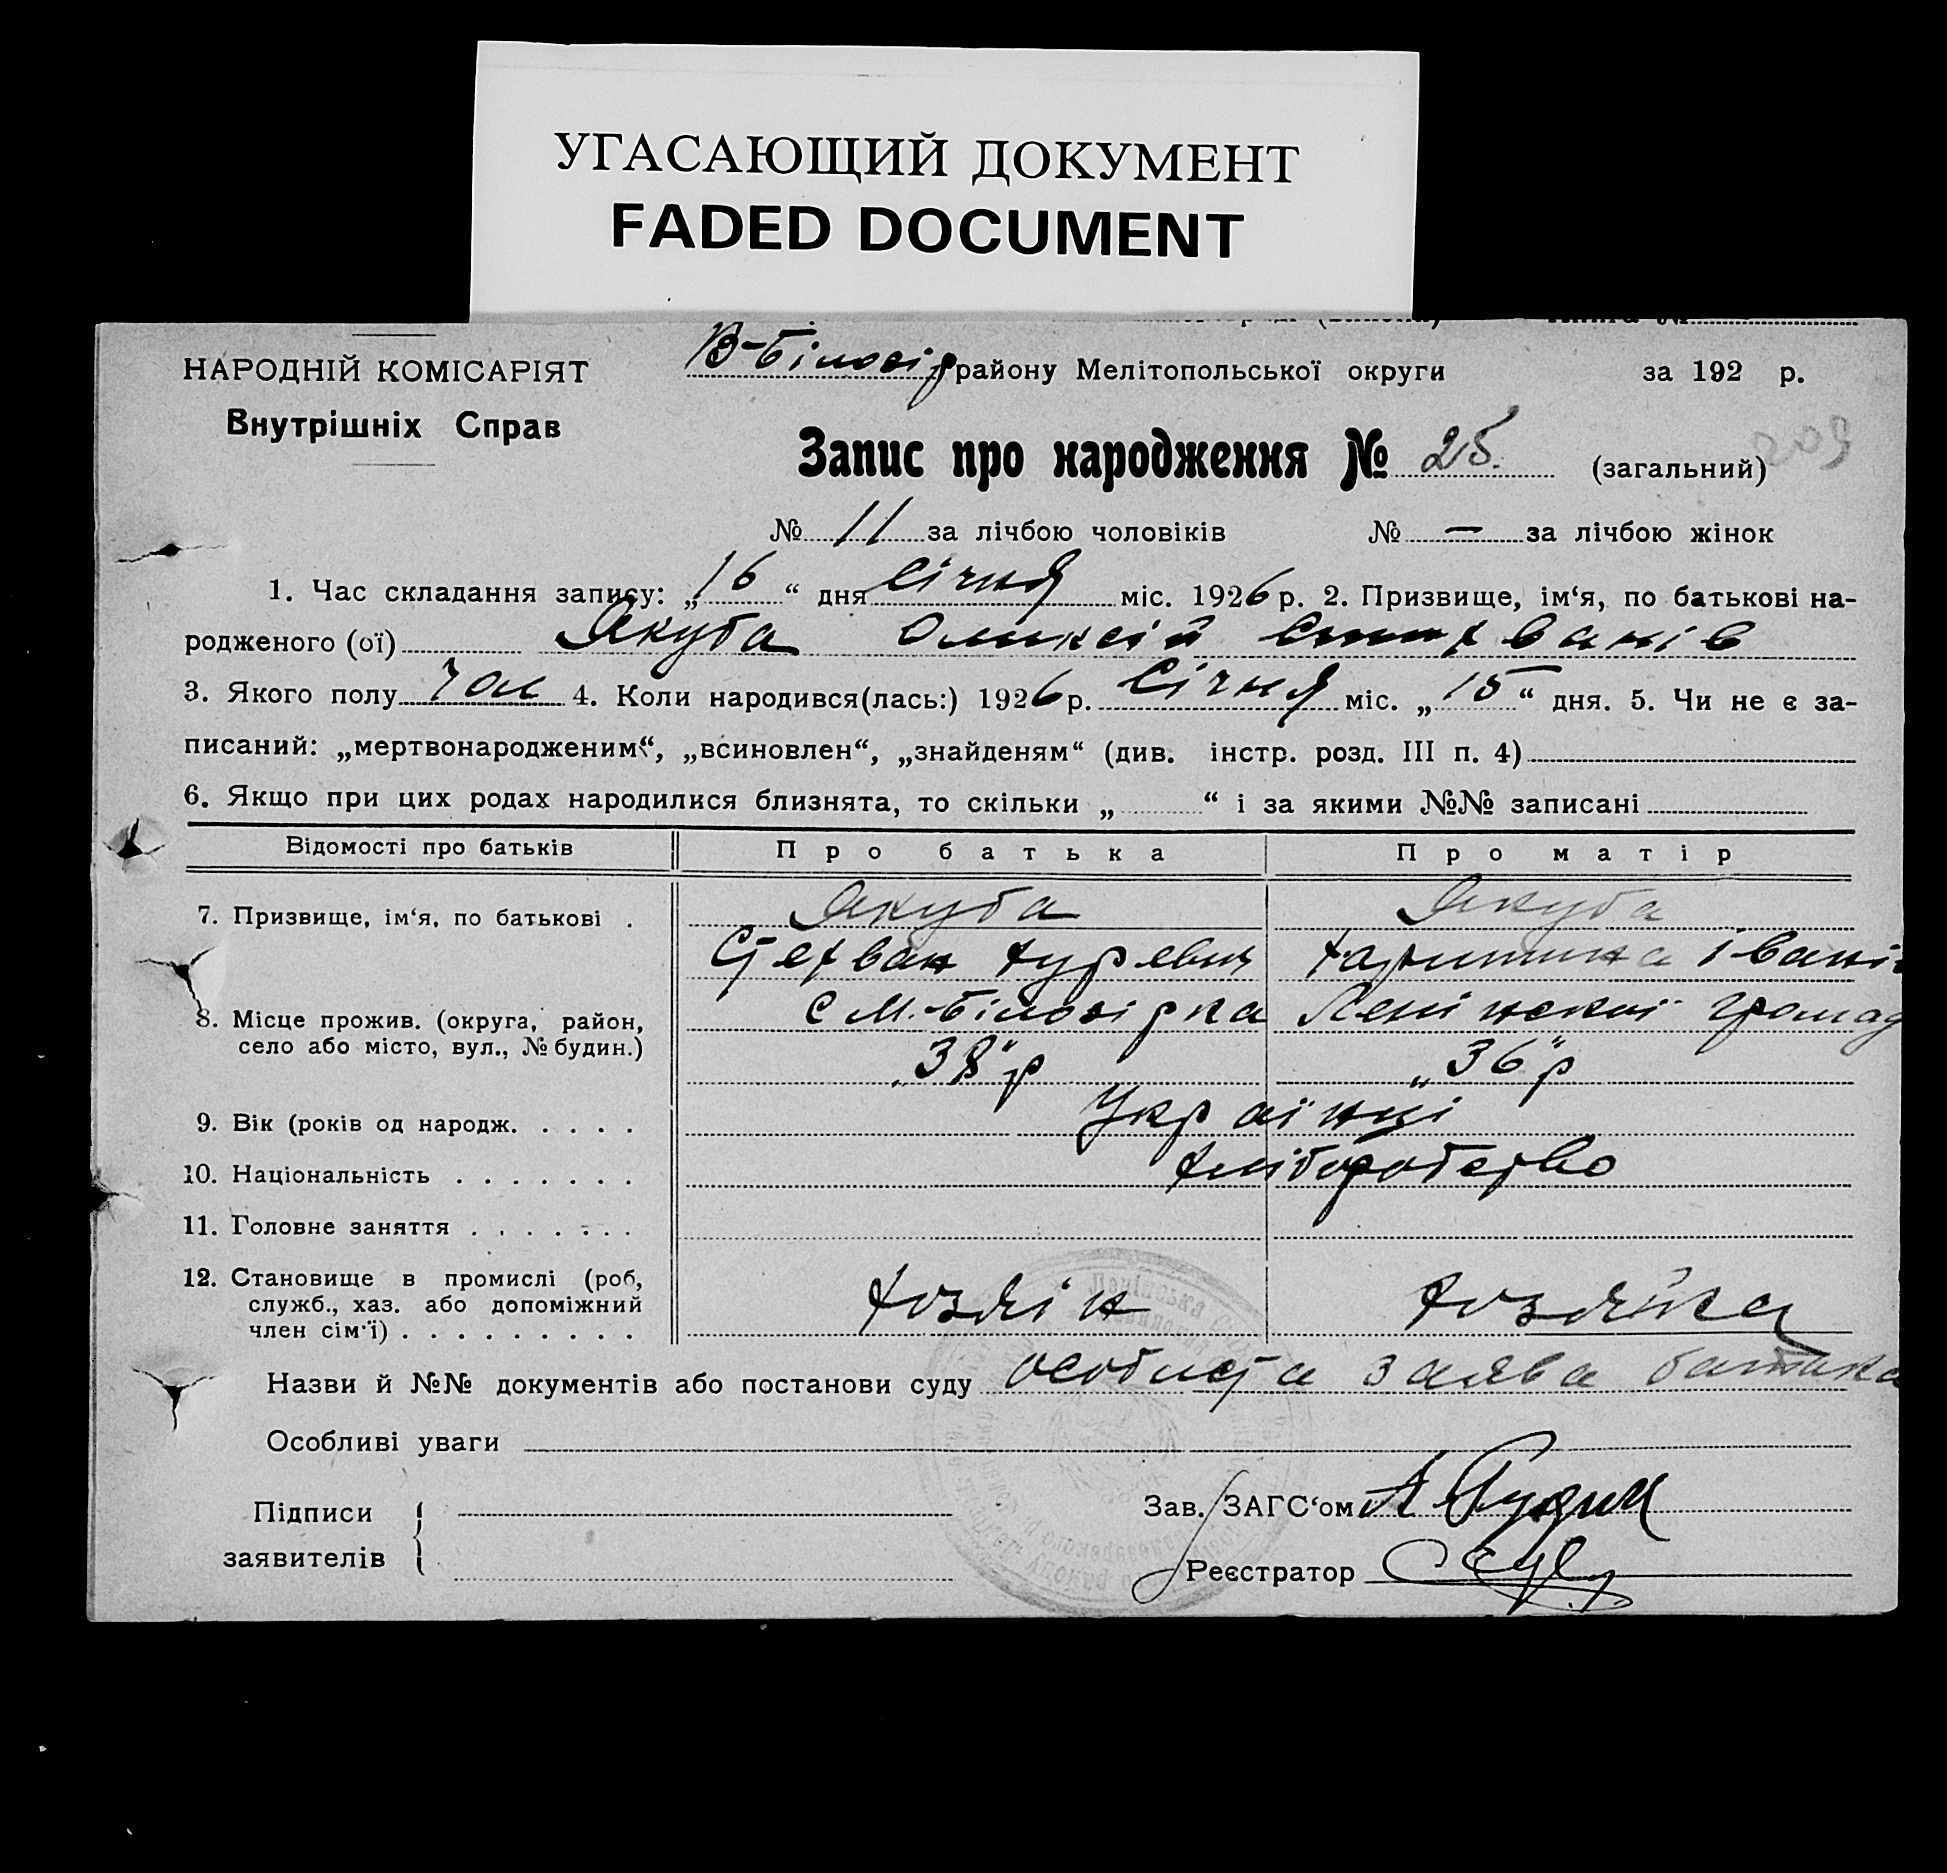 УГАСАЮЩИЙ ДОКУМЕНТ
FADED DOCUMENT
НАРОДНІЙ КОМІСАРІЯТ
Внутрішніх Справ
В-Білозір району Мелітопольської округи за 192 р.
Запис про народження № 25. (загальний) 209
№ 11 за лічбою чоловіків № — за лічбою жінок
1. Час складання запису: „16“ дня січня міс. 1926 р. 2. Призвище, ім‘я, по батькові на-
родженого (ої) Якуба Оликсій
3. Якого полу чол 4. Коли народився(лась:) 1926 р. Січня міс. „15“ дня. 5. Чи не є за-
писаний: „мертвонародженим“, „всиновлен“, „знайденям“ (див. інстр. розд. III п. 4)
6. Якщо при цих родах народилися близнята, то скільки „ “ і за якими №№ записані
Відомості про батьків Про батька Про матір
7. Призвище, ім‘я, по батькові . Якуба Якуба
Стехван Івані
8. Місце прожив. (округа, район, с М.-Білозірка Ленінської громад
село або місто, вул., № будин.)
„38“ р „36“ р
9. Вік (років од народж. . . . . Українці
10. Національність . . . . . . . хліборобство
11. Головне заняття . . . . . . .
12. Становище в промислі (роб, хозяін хозяйка
служб., хаз. або допоміжний
член сім‘ї) . . . . . . . . . .
Назви й №№ документів або постанови суду особиста заява батька
Особливі уваги
Підписи
заявителів
Зав. ЗАГС‘ом
Реєстратор